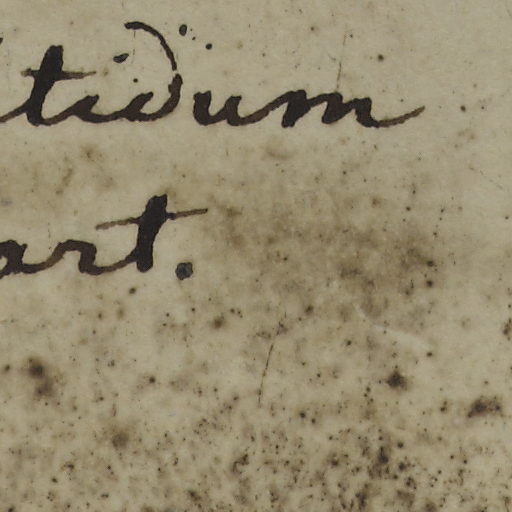 tidum
art.